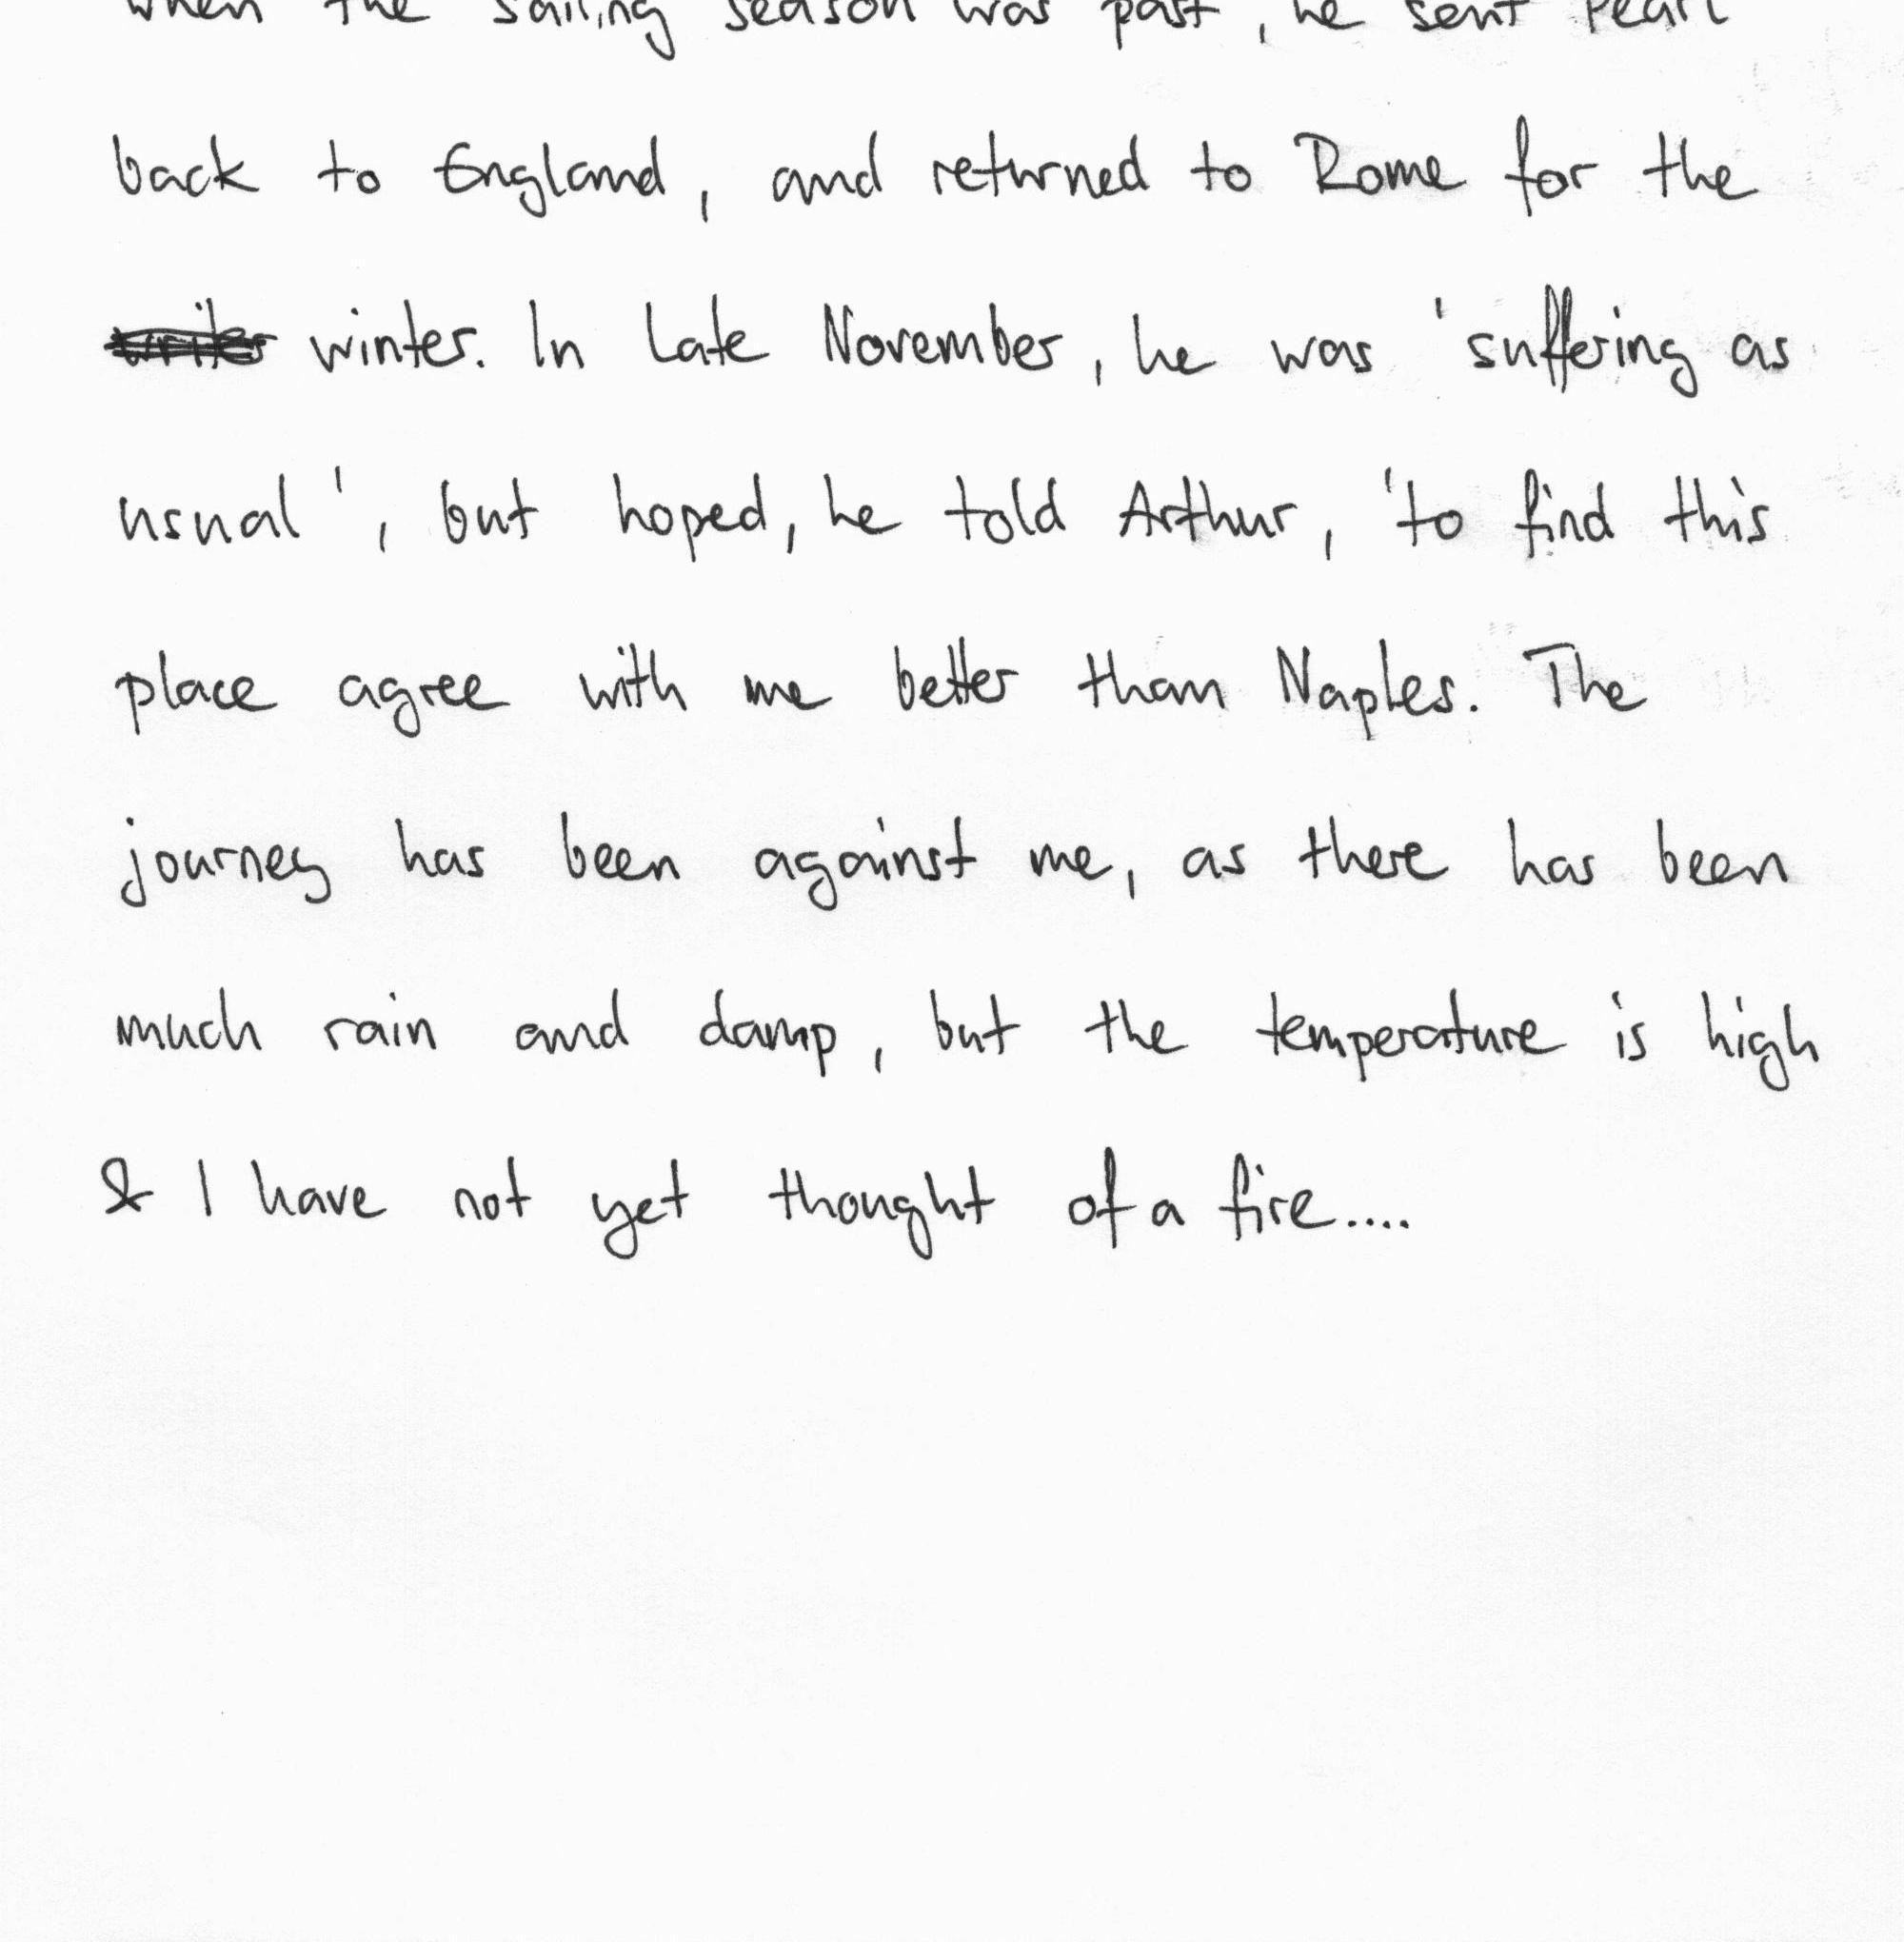 when the sailing season was past, he sent Pearl
back to England, and returned to Rome for the
winter. In late November, he was 'suffering as
usual', but hoped, he told Arthur, 'to find this
place agree with me better than Naples. The
journey has been against me, as there has been
much rain and damp, but the temperature is high
& I have not yet thought of a fire....